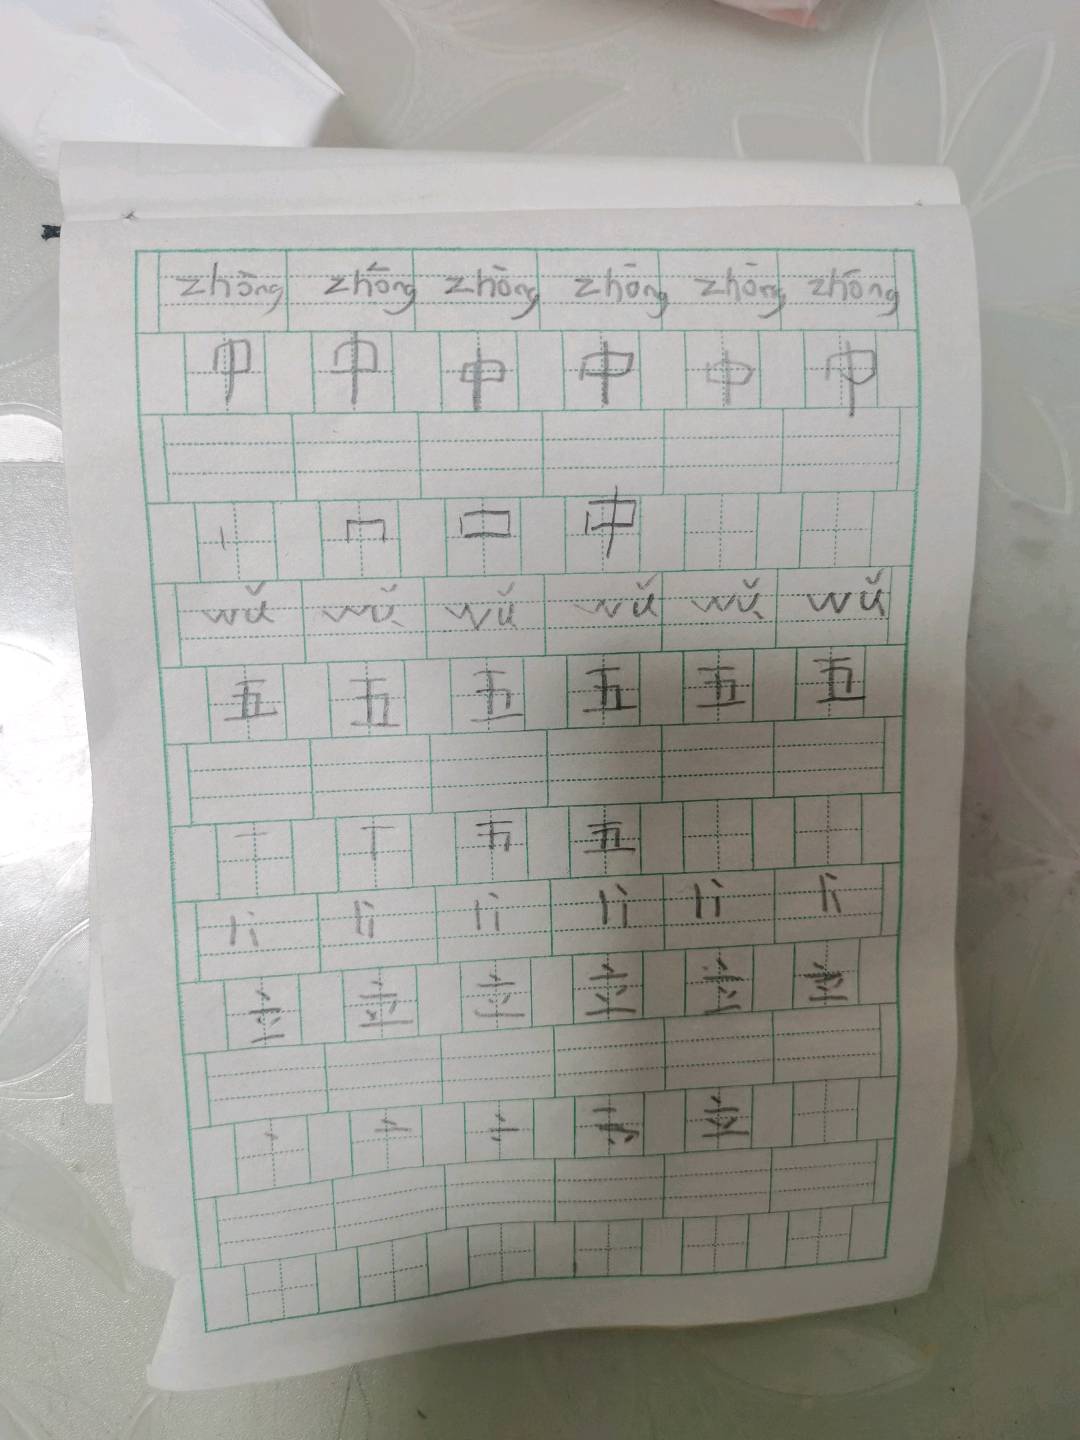 zhōng zhōng zhōng zhōng zhōng zhōng
中 中 中 中 中 中
丨 冂 口 中
wǔ wǔ wǔ wǔ wǔ wǔ
五 五 五 五 五 五
一 丅 五 五
lì lì lì lì lì lì
立 立 立 立 立 立
丶 亠 立 立